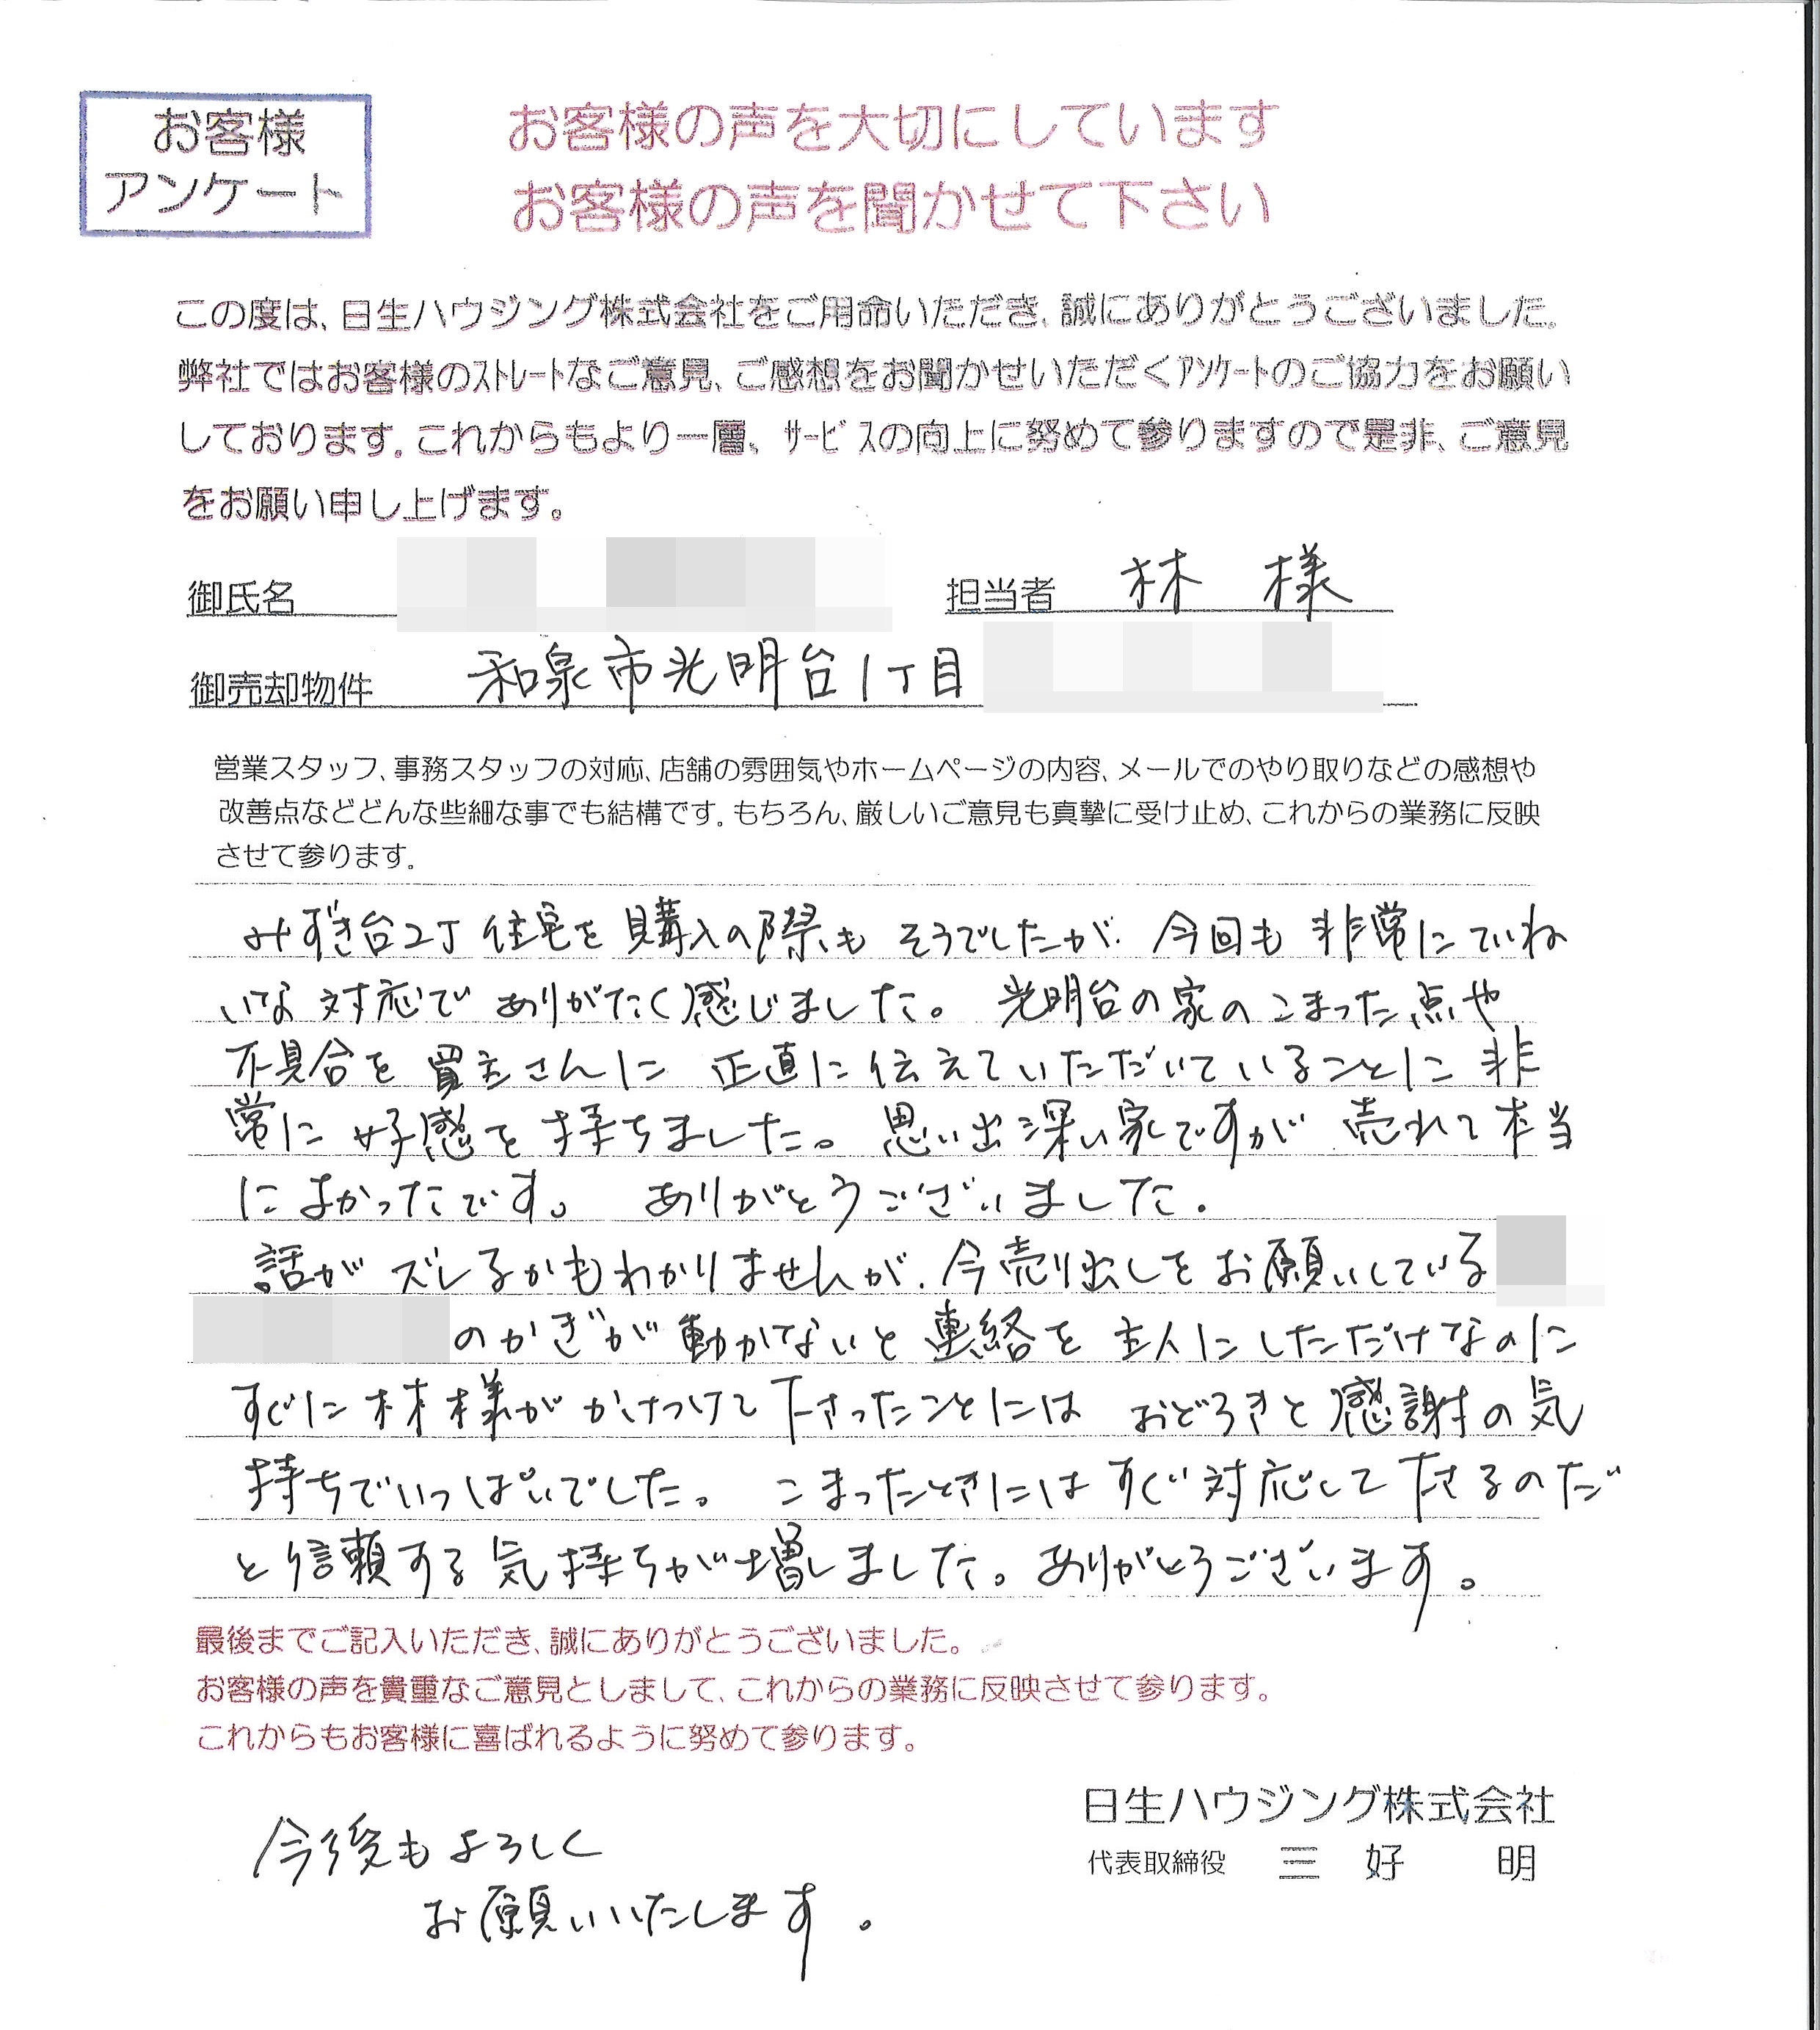 お客様
アンケート
お客様の声を大切にしています
お客様の声を聞かせて下さい
この度は、日生ハウジング株式会社をご用命いただき、誠にありがとうございました。
弊社ではお客様のｽﾄﾚｰﾄなご意見、ご感想をお聞かせいただくｱﾝｹｰﾄのご協力をお願い
しております。これからもより一層、ｻｰﾋﾞｽの向上に努めて参りますので是非、ご意見
をお願い申し上げます。
御氏名 担当者 林 様
御売却物件 和泉市光明台1丁目
営業スタッフ、事務スタッフの対応、店舗の雰囲気やホームページの内容、メールでのやり取りなどの感想や
改善点などどんな些細な事でも結構です。もちろん、厳しいご意見も真摯に受け止め、これからの業務に反映
させて参ります。
みずき台2丁 住宅を 購入の際も そうでしたが、今回も 非常にていね
いな 対応で ありがたく感じました。 光明台の家の こまった点や
不具合を 買主さんに 正直に伝えていただいていることに 非
常に 好感を 持ちました。思い出深い家ですが 売れて本当
によかったです。 ありがとうございました。
話が ズレるかもわかりませんが、今売り出しをお願いしている
のかぎが動かないと連絡を 主人にしただけなのに
すぐに林様が かけつけて下さったことには おどろきと感謝の気
持ちでいっぱいでした。 こまったときにはすぐ対応して下さるのだ
と信頼する気持ちが増しました。ありがとうございます。
最後までご記入いただき、誠にありがとうございました。
お客様の声を貴重なご意見としまして、これからの業務に反映させて参ります。
これからもお客様に喜ばれるように努めて参ります。
日生ハウジング株式会社
代表取締役 三 好 明
今後もよろしく
お願いいたします。